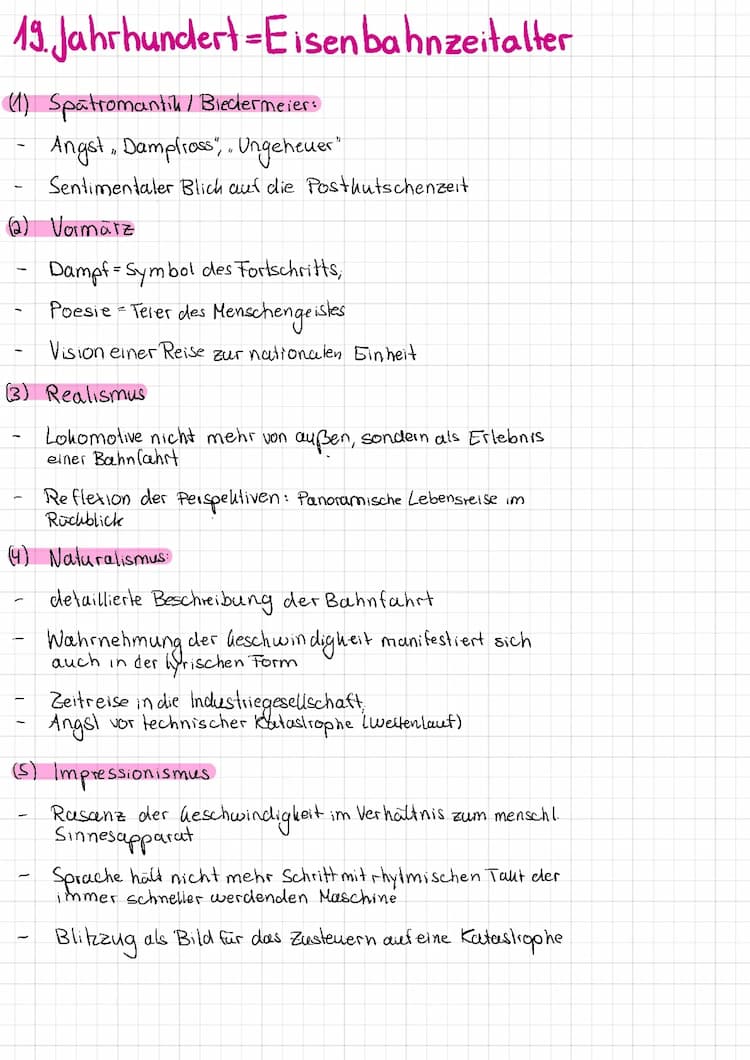 19. Jahrhundert = Eisenbahnzeitalter
(1) Spätromantik / Biedermeier:
- Angst „Dampfross", „Ungeheuer"
- Sentimentaler Blick auf die Postkutschenzeit
(2) Vormärz
- Dampf = Symbol des Fortschritts,
- Poesie = Feier des Menschengeistes
- Vision einer Reise zur nationalen Einheit
(3) Realismus
- Lokomotive nicht mehr von außen, sondern als Erlebnis
einer Bahnfahrt
- Reflexion der Perspektiven: Panoramische Lebensreise im
Rückblick
(4) Naturalismus:
- detaillierte Beschreibung der Bahnfahrt
- Wahrnehmung der Geschwindigkeit manifestiert sich
auch in der lyrischen Form
- Zeitreise in die Industriegesellschaft,
- Angst vor technischer Katastrophe (Wettenlauf)
(5) Impressionismus
- Rasanz der Geschwindigkeit im Verhältnis zum menschl.
Sinnesapparat
- Sprache hält nicht mehr Schritt mit rhytmischen Takt der
immer schneller werdenden Maschine
- Blitzzug als Bild für das Zusteuern auf eine Katastrophe